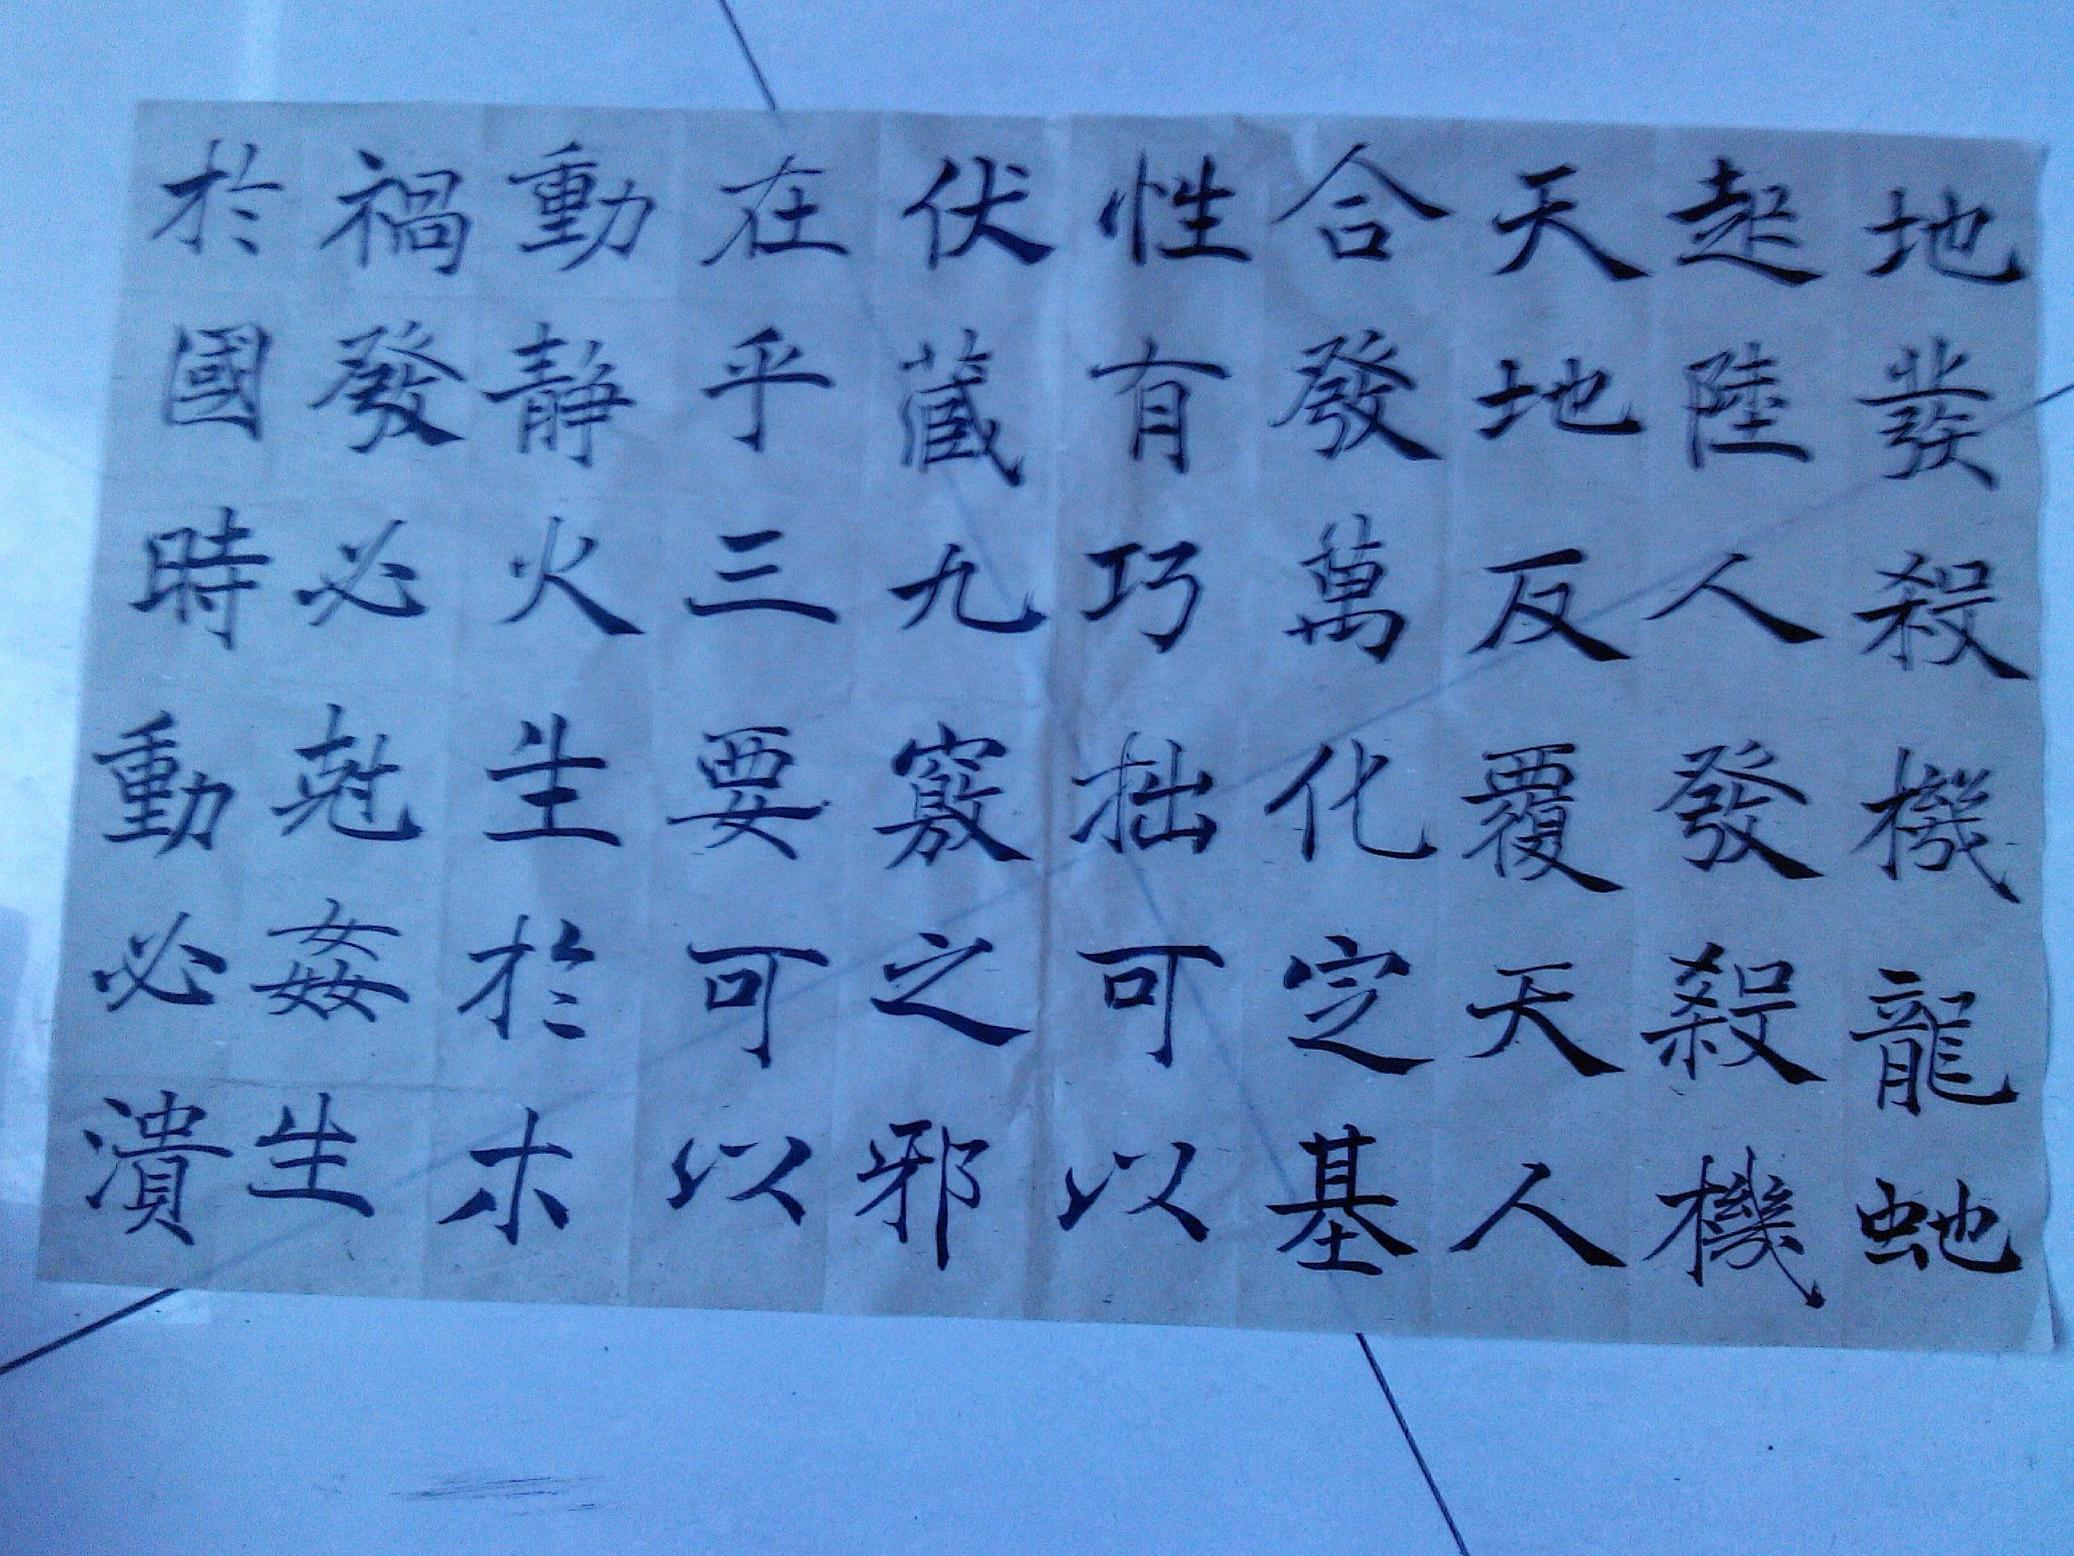 地發殺機龍虵
起陸人發殺機
天地反覆天人
合發萬化定基
性有巧拙可以
伏藏九竅之邪
在乎三要可以
動静火生於木
禍發必尅姦生
於國時動必潰